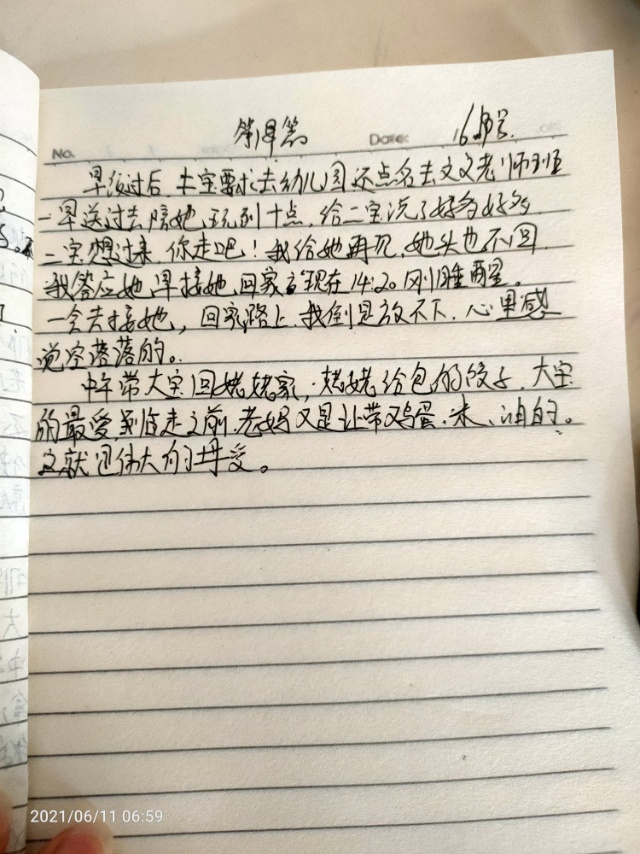 No.
Date:
早饭过后,二宝要求去幼儿园还点名去文文老师班
一早送过去陪她玩到十点,给二宝说了好多好多
二宝想过来,你走吧!我给她再见,她头也不回
我答应她早接她,回家 现在14:20刚睡醒。
一会去接她,回家路上,我倒是放不下,心里感
觉空落落的。
中午带大宝回姥姥家,姥姥给包的饺子,大宝
的最爱,到临走之前,老妈又是让带鸡蛋、米、油的。
这就是伟大的母爱。
2021/06/11 06:59